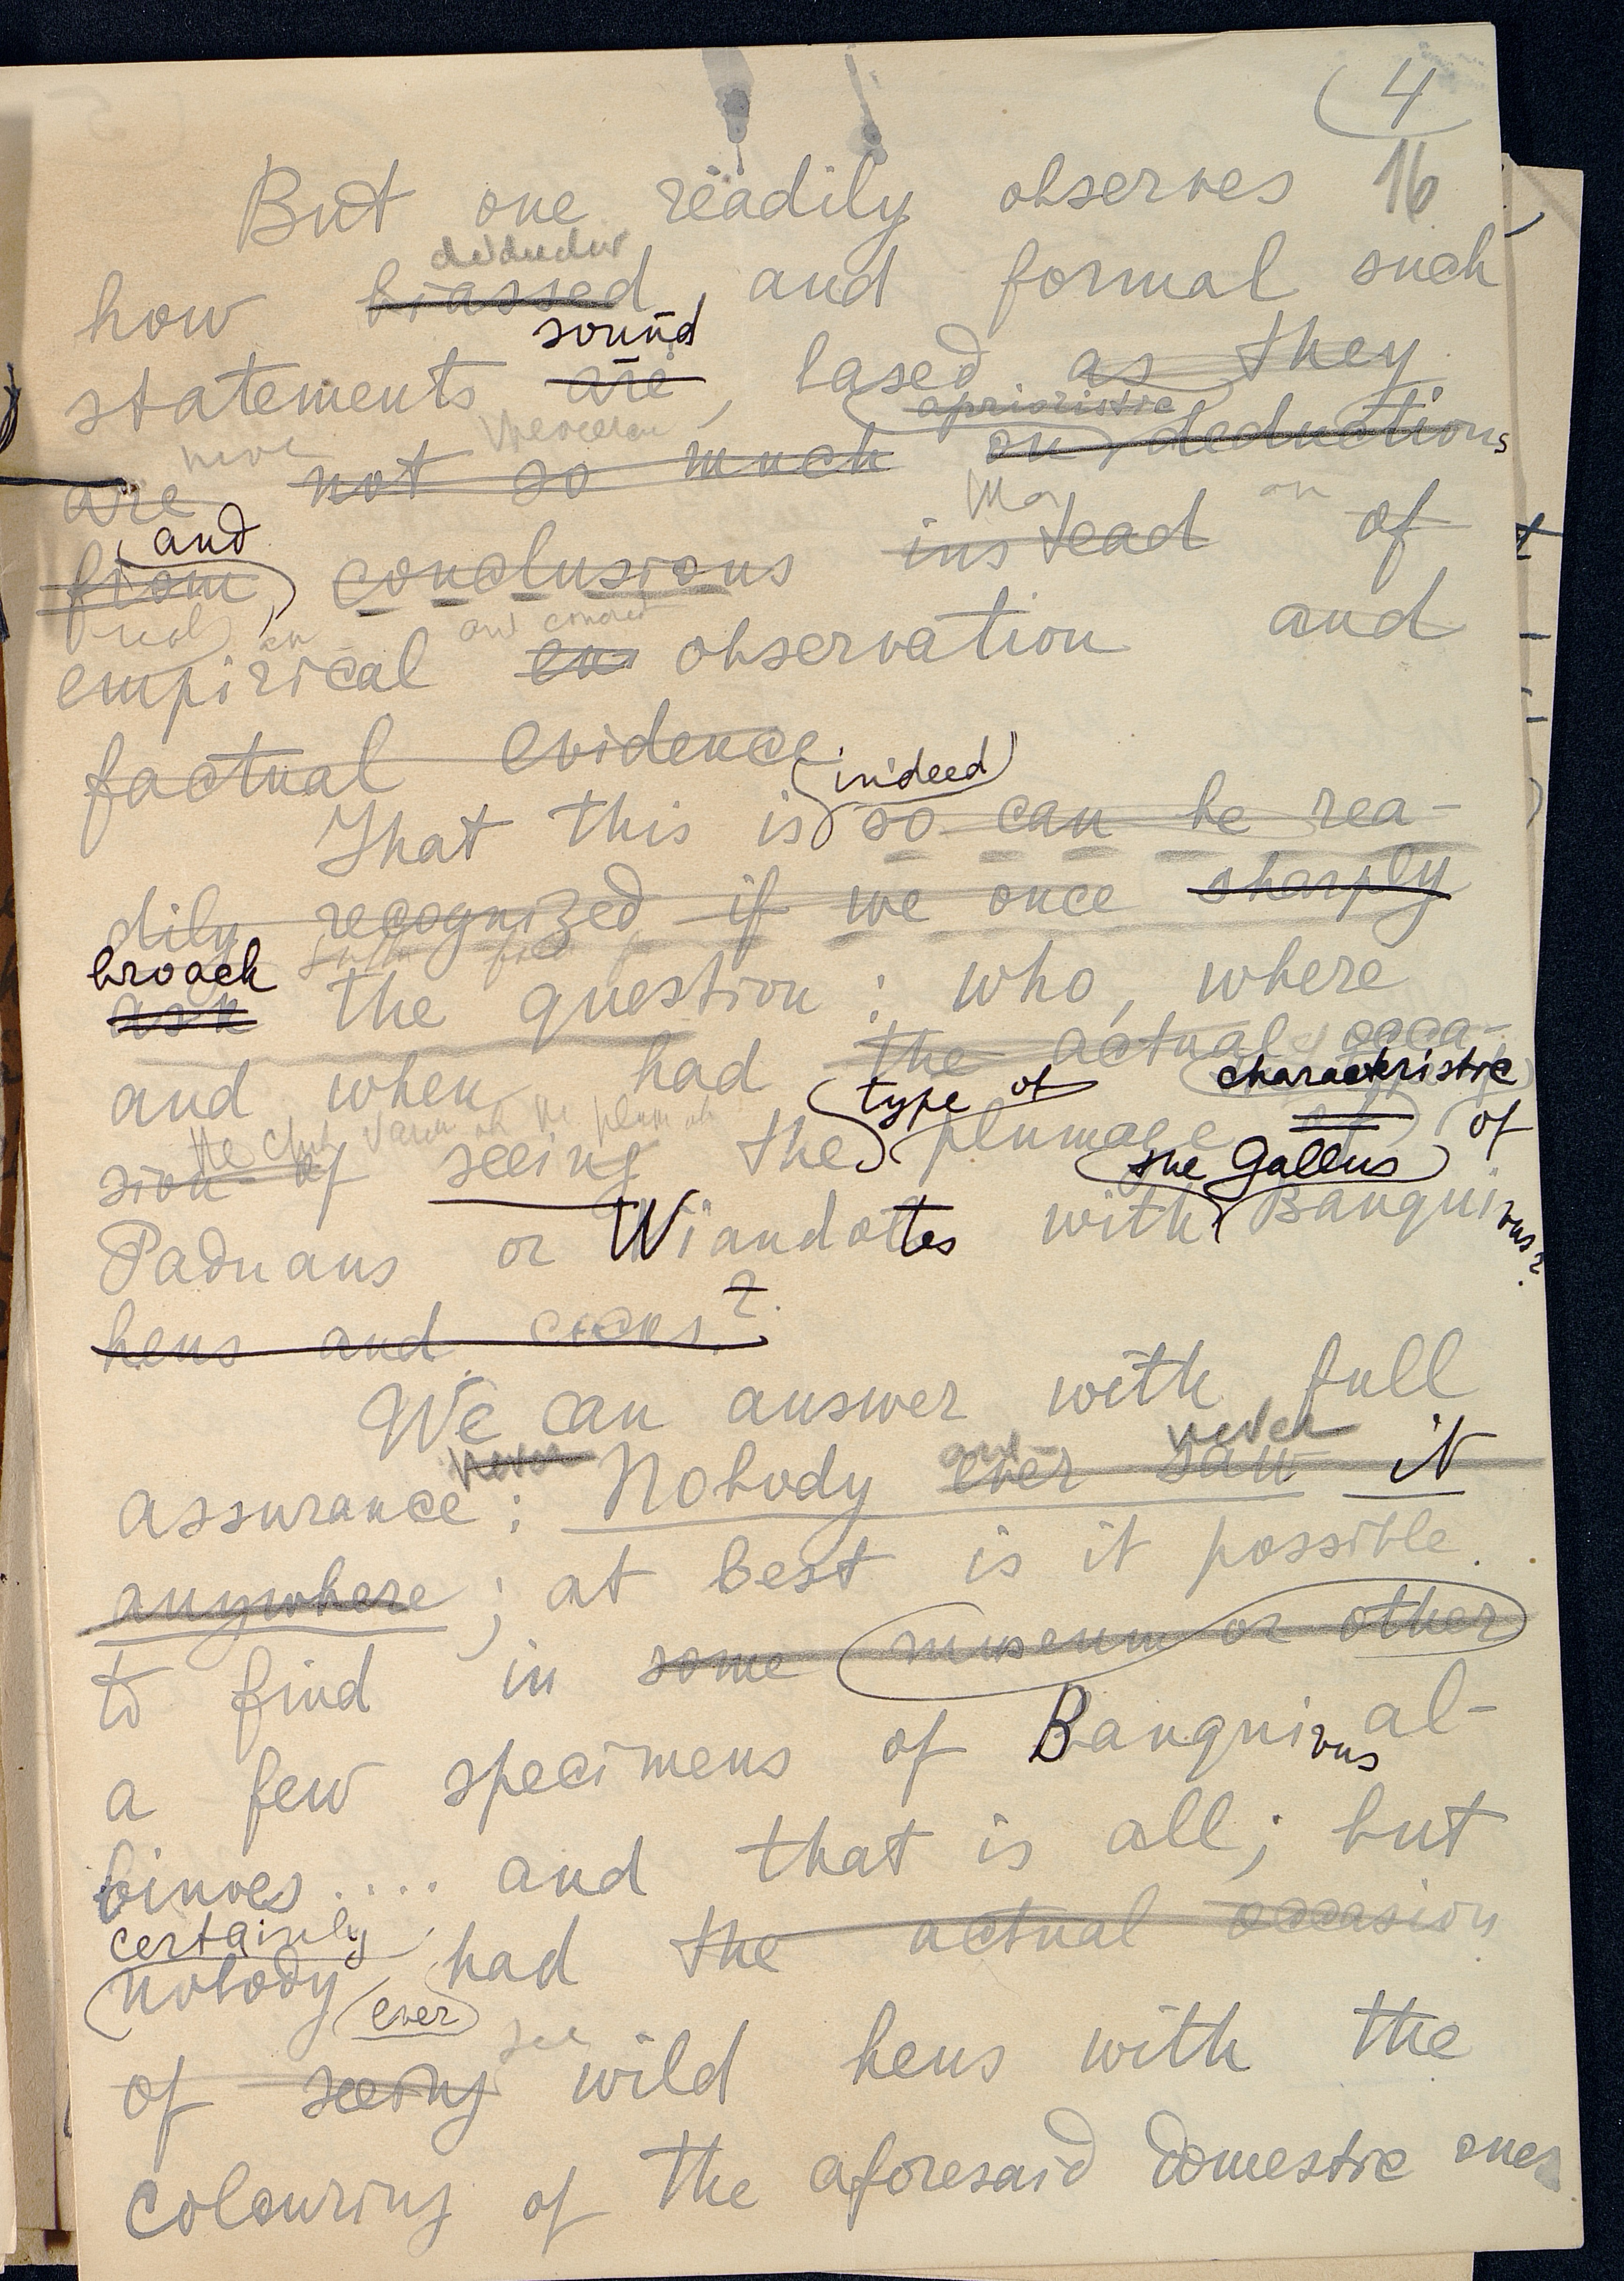 4
16
But one readily observes
how biassed, and formal such
sound
statements are, based as they
aprioristic
are not so much on deductions
and
from conclusions instead of
empirical observation and
factual evidence.
indeed
That this is so can be rea-
dily recognized if we once sharply
broach
ask the question: who, where
and when had the actual occa-
type of characteristic
sion of seeing the plumage of of
the Gallus
Paduans or Wiandottes with Banquivus?
hens and cocks?
We can answer with full
never never
assurance: Nobody ever saw it
anywhere; at best is it possible
to find in some museum or other
a few specimens of Banquivus al-
binoes.... and that is all; but
certainly
nobody had the actual occasion
ever
see
of seeing wild hens with the
colouring of the aforesaid domestic ones